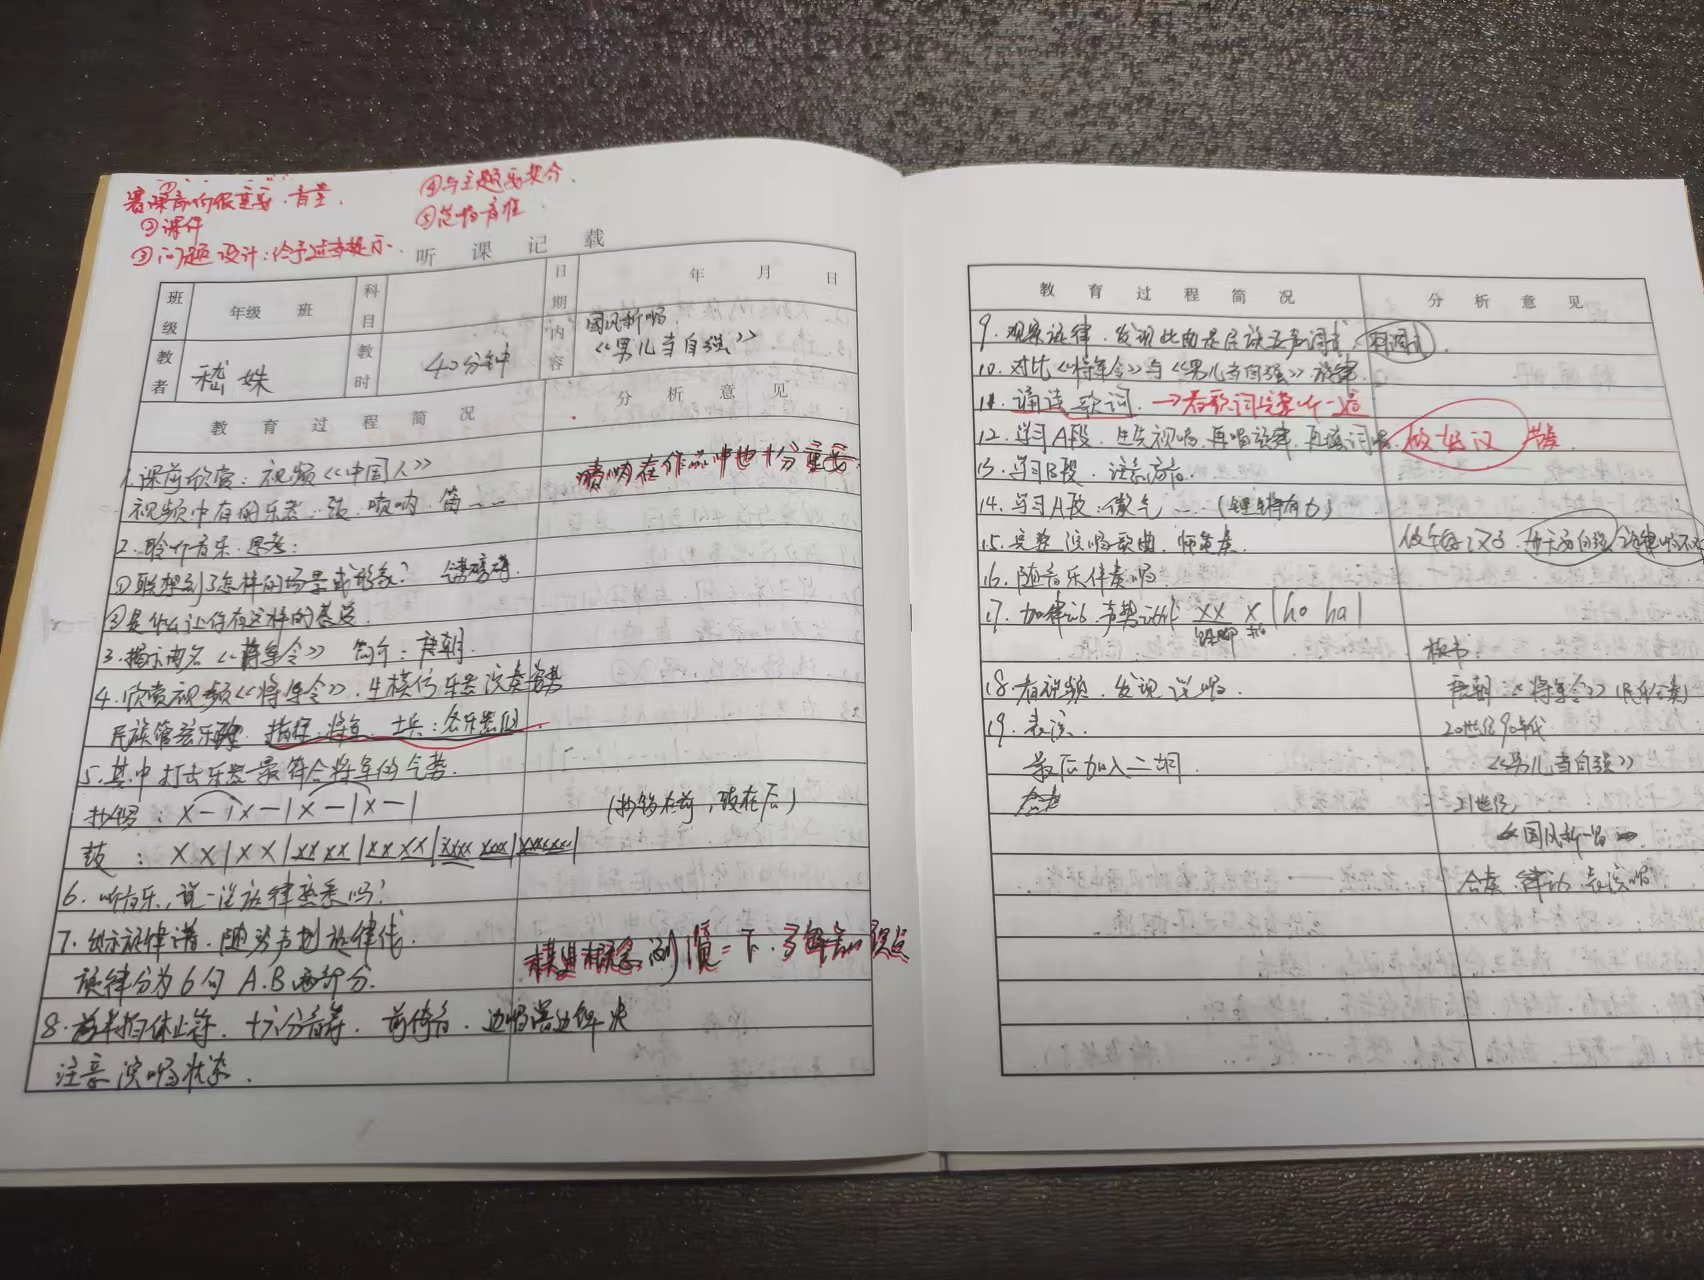 ④与主题要契合.
②课件
⑤范唱音准
③问题设计:给予过多提示.
听课记载
班级 年级 班 科目 日期 年 月 日
教者 嵇姝 教时 40分钟 内容 国风新唱 《男儿当自强》
教育过程简况 分析意见
1.课前欣赏:视频《中国人》
唢呐在作品中也十分重要.
视频中有的乐器:鼓.唢呐.笛……
2.聆听音乐.思考:
①联想到了怎样的场景或形象?
②是什么让你有这样的感受.
3.揭示曲名《将军令》 简介:唐朝.
4.欣赏视频《将军令》.生模仿乐器演奏姿势
民族管弦乐 指挥:将军 士兵:各乐器组.
5.其中打击乐器最符合将军的气势.
抄锣: X — | X — | X — | X — |
(抄锣在前,鼓在后)
鼓: X X | X X | XX XX | XX XX | XXXX XXXX | XXXXXXX |
6.听音乐,说一说旋律熟悉吗?
7.出示旋律谱.随琴声划旋律线.
旋律分为6句 A.B两部分.
8.前半拍休止符.十六分音符.前倚音.边唱边解决
注意演唱状态.
教育过程简况 分析意见
9.观察旋律.发现此曲是民族五声调式(羽调式).
10.对比《将军令》与《男儿当自强》旋律.
11.诵读歌词.→看歌词完整听一遍
12.学习A段.生先视唱.再唱旋律.再填词唱.做好汉
13.学习B段.注意高音.
14.学习A段.傲气……(铿锵有力)
15.完整演唱歌曲.师笙奏.
16.随音乐伴奏唱
17.加律动.声势动作 XX X | ho ha |
板书:
18.看视频.发现说唱. 唐朝:《将军令》(民乐合奏)
19.表演. 20世纪90年代
最后加入二胡. 《男儿当自强》
合奏 21世纪
《国风新唱》
合奏 律动 表演唱